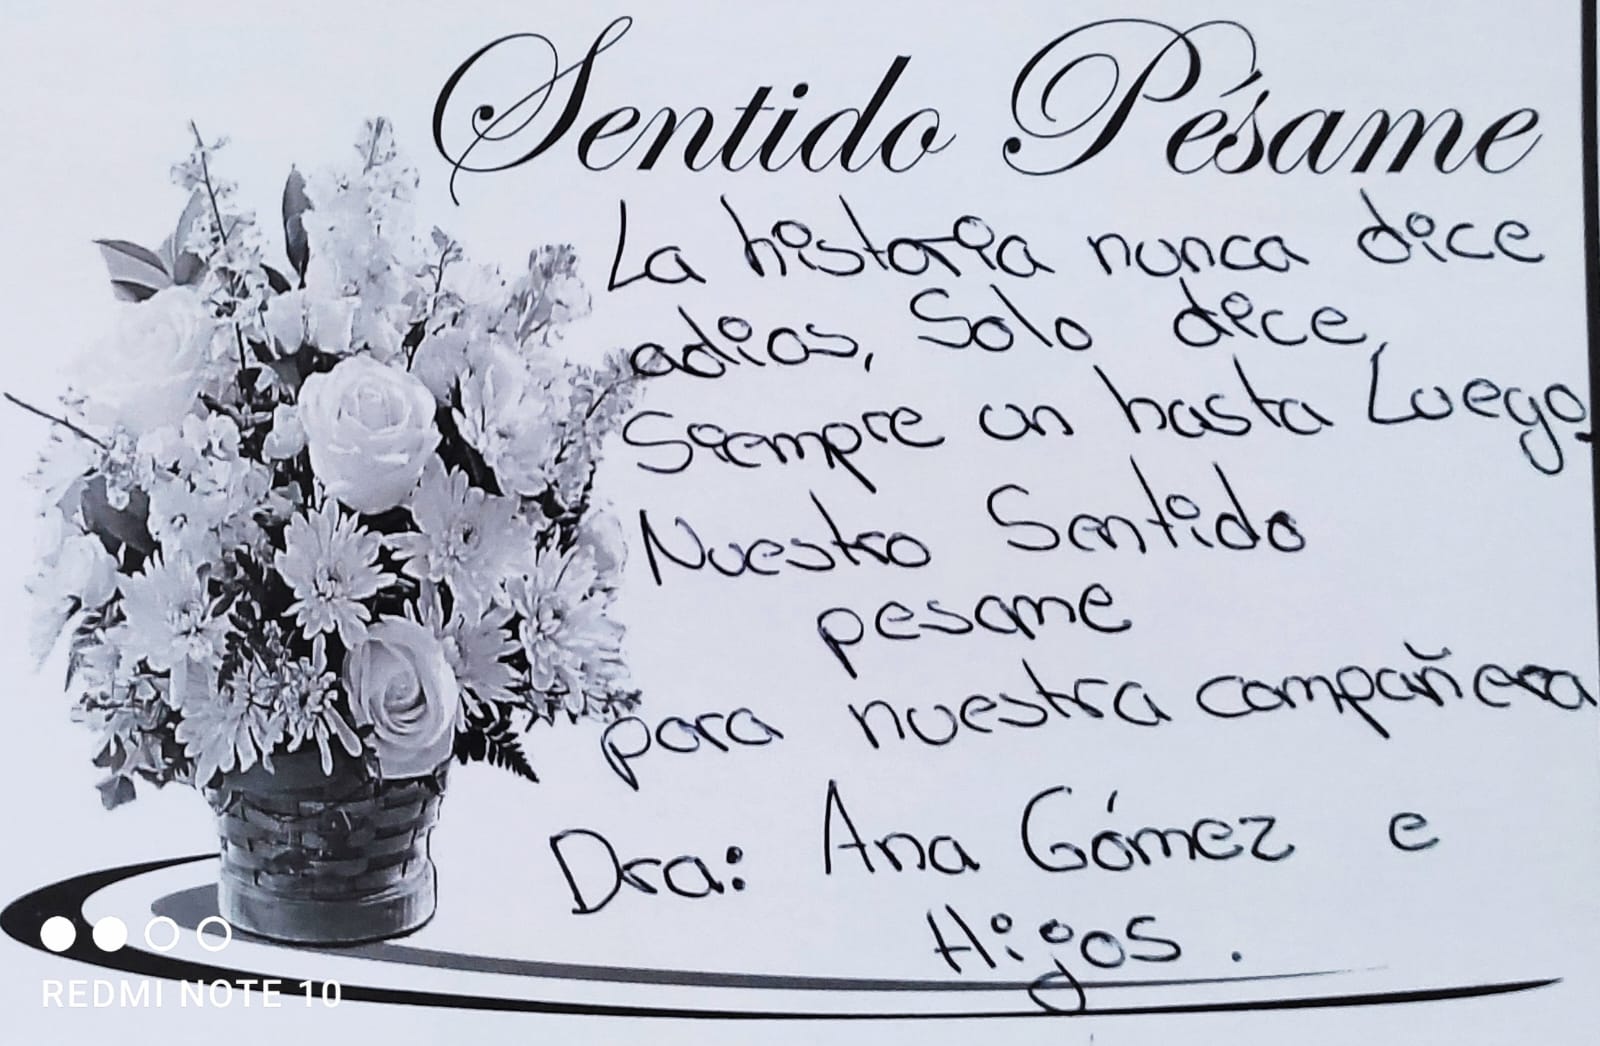 Sentido Pésame
La historia nunca dice
adios, Solo dice,
Siempre un hasta Luego.
Nuestro Sentido
pesame
para nuestra compañera
Dra: Ana Gómez e
Hijos.
REDMI NOTE 10